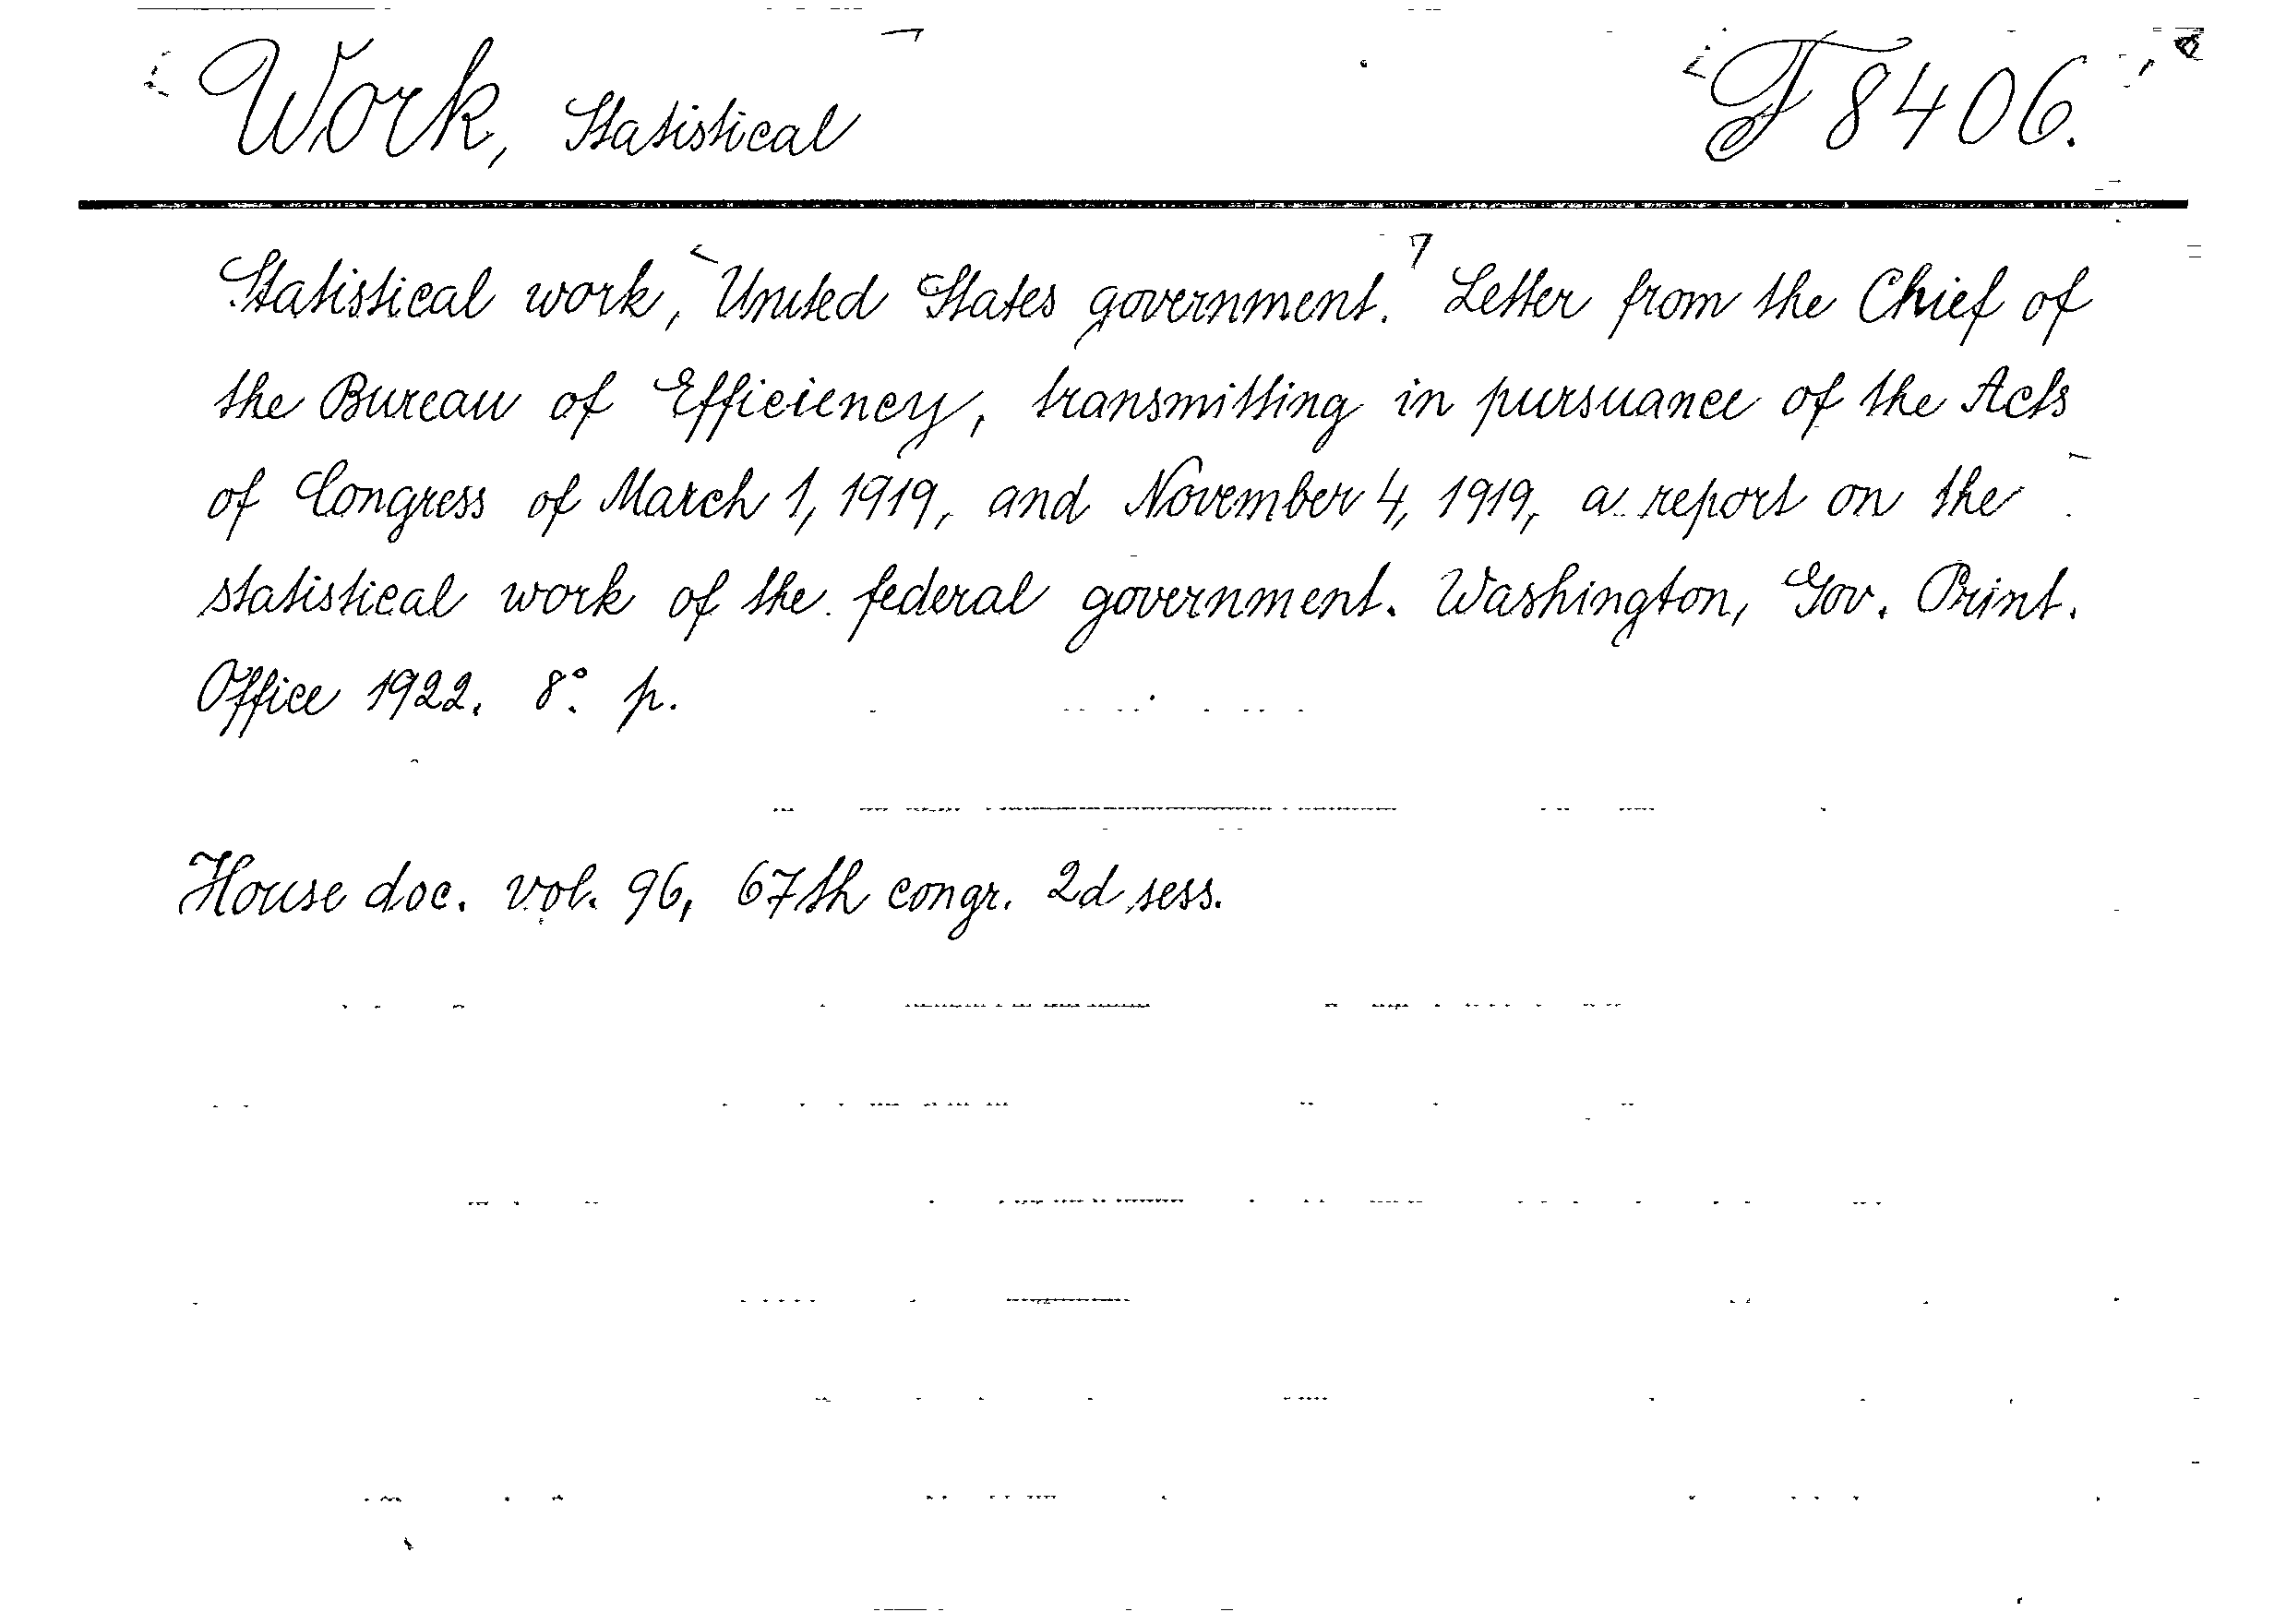 Work, Statistical F 8406.
Statistical work, United States government. Letter from the Chief of
the Bureau of Efficiency, transmitting in pursuance of the Acts
of Congress of March 1, 1919, and November 4, 1919, a report on the
statistical work of the federal government. Washington, Gov. Print.
Office 1922. 8°. p.
House doc. vol. 96, 67th congr. 2d sess.